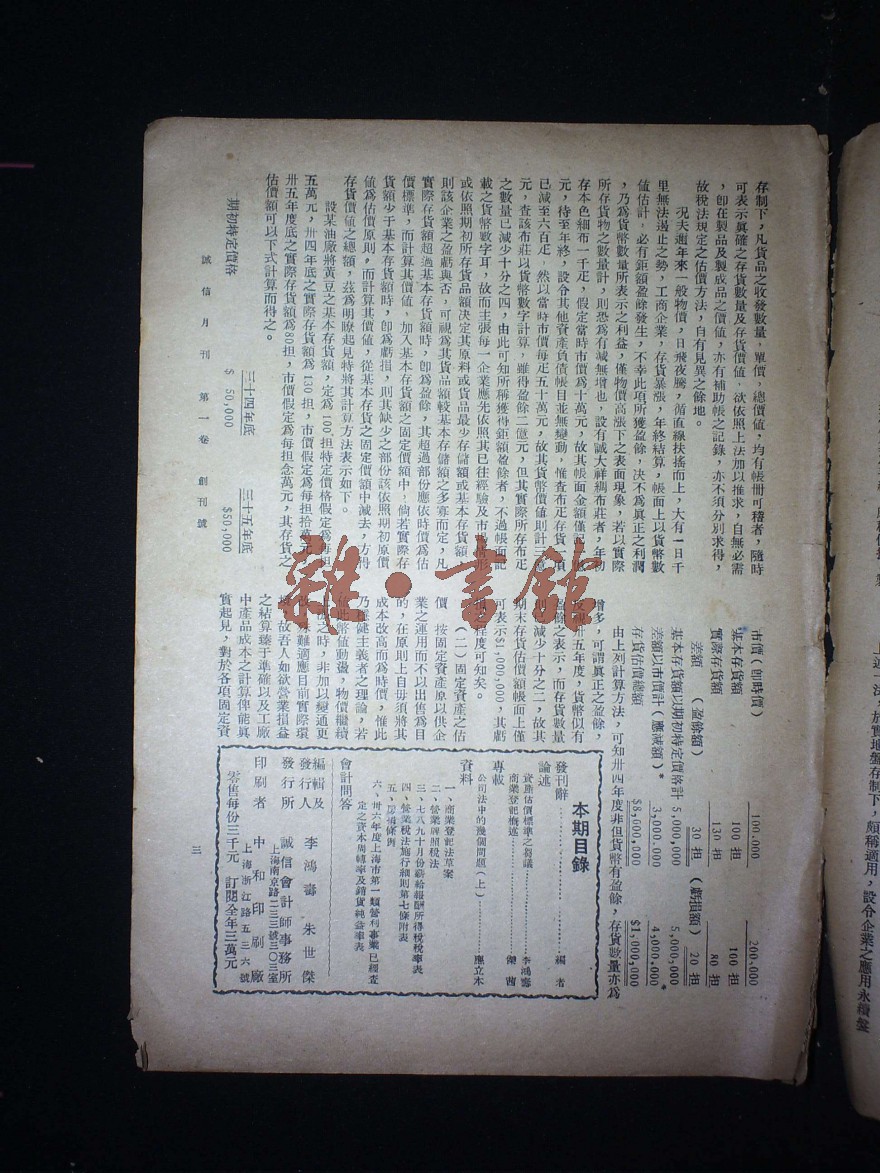 存制下，凡貨品之收發數量，單價，總價値，均有帳冊可稽者，隨時
可表示眞確之存貨數量及存貨價値，欲依照上法加以推求，自無必需
，卽在製品及製成品之價値，亦有補助帳之記錄，亦不須分別求得，
故稅法規定之估價方法，自有見異之餘地。
況夫邇年來一般物價，日飛夜騰，循直線扶搖而上，大有一日千
里無法遏止之勢，工商企業，存貨暴漲，年終結算，帳面上以貨幣數
値估計，必有鉅額盈餘發生，不幸此項所獲盈餘，決不爲眞正之利潤
，乃爲貨幣數量所表示之利益，僅物價高漲下之表面現象，若以實際
所存貨物之數量計，則恐爲有減無增也，設有誠大祥綢布莊者，年初
存本色細布一千疋，假定當時市價爲十萬元，故其帳面金額僅
元，待至年終，設令其他資產負債帳目並無變動，惟查布疋存貨
已減至六百疋，然以當時市價每疋五十萬元，故其貨幣價値則計三
元，查該布莊以貨幣數字計算，雖得盈餘二億元，但其實際所存布疋
之數量已減少十分之四，由此可知所稱獲得鉅額盈餘者，不過帳面記
載之貨幣數字耳，故而主張每一企業應先依照其已往經驗及市
或依照期初所存貨品額決定其原料或貨品最少存儲額或基本存貨額
則該企業之盈虧與否，可視爲其貨品額較基本存儲額之多寡而定，凡
實際存貨額超過基本存貨額時，卽爲盈餘，其超過部份應依時價爲估
價標準，而計算其價値，加入基本存貨額之固定價額中，倘若實際存
貨額少于基本存貨額時，卽爲虧損，則其缺少之部份該依照期初原價
値爲估價原則，而計算其價値，從基本存貨之固定價額中減去，方得
存貨價値之總額，茲爲明瞭起見特將其計算方法表示如下。
設某油廠將黃豆之基本存貨額，定爲100担特定價格假定爲每担
五萬元，卅四年底之實際存貨額爲130担，市價假定爲每担拾萬元
卅五年度底之實際存貨額爲80担，市價假定爲每担念萬元，其存貨之
估價額可以下式計算而得之。
三十四年底 三十五年底
期初特定價格 $ 50,000 $50,000
市價（卽時價） 100,000 200,000
基本存貨額 100 担 100 担
實際存貨額 130 担 80 担
差額 （盈餘額） 30 担 （虧損額） 20 担
基本存貨額以期初特定價格計 5,000,000 5,000,000
差額以市價計（應減額）* 3,000,000 4,000,000*
存貨估價總額 $8,000,000 $1,000,000
由上列計算方法，可知卅四年度非但貨幣有盈餘，存貨數量亦爲
增多，可謂眞正之盈餘，
反觀卅五年度，貨幣似有
盈餘之表示，而存貨數量
則已減少十分之二，故其
期末存貨估價額帳面上僅
可表示$1,000,000，其虧
損之程度可知矣。
（二）固定資產之估
價 按固定資產原以供企
業之運用而不以出售爲目
的，在原則上自毋須將其
成本改高而爲時價，惟此
乃穩健主義者之理論，若
依此幣値動盪，物價繼續
上漲之時，非加以變通更
改，殊難適應目前實際環
境，故吾人如欲營業損益
之結算臻于準確以及工廠
中產品成本之計算俾能眞
實起見，對於各項固定資
本期目錄
發刊辭…………編者
論述
資產估價標準之芻議………李鴻壽
商業登記概述…………
專載
公司法中的幾個問題（上）………應立本
資料
一、商業登記法草案
二、營業牌照稅法
三、七八九十月份薪給報酬所得稅稅率表
四、營業稅法施行細則第七條附表
五、條例
六、卅六年度上海市第一類營利事業已經查
定之資本周轉率及銷貨純益率表
會計問答
編輯及發行人 李鴻壽 朱世傑
發行所 誠信會計師事務所
上海南京路二三三號三〇三室
印刷者 中和印刷廠
上海浙江路五三六號
零售每份三千元 訂閱全年三萬元
誠信月刊 第一卷 創刊號
三
雜·書館
上述一法，於實地盤存制下，頗稱適用，設令企業之應用永續盤